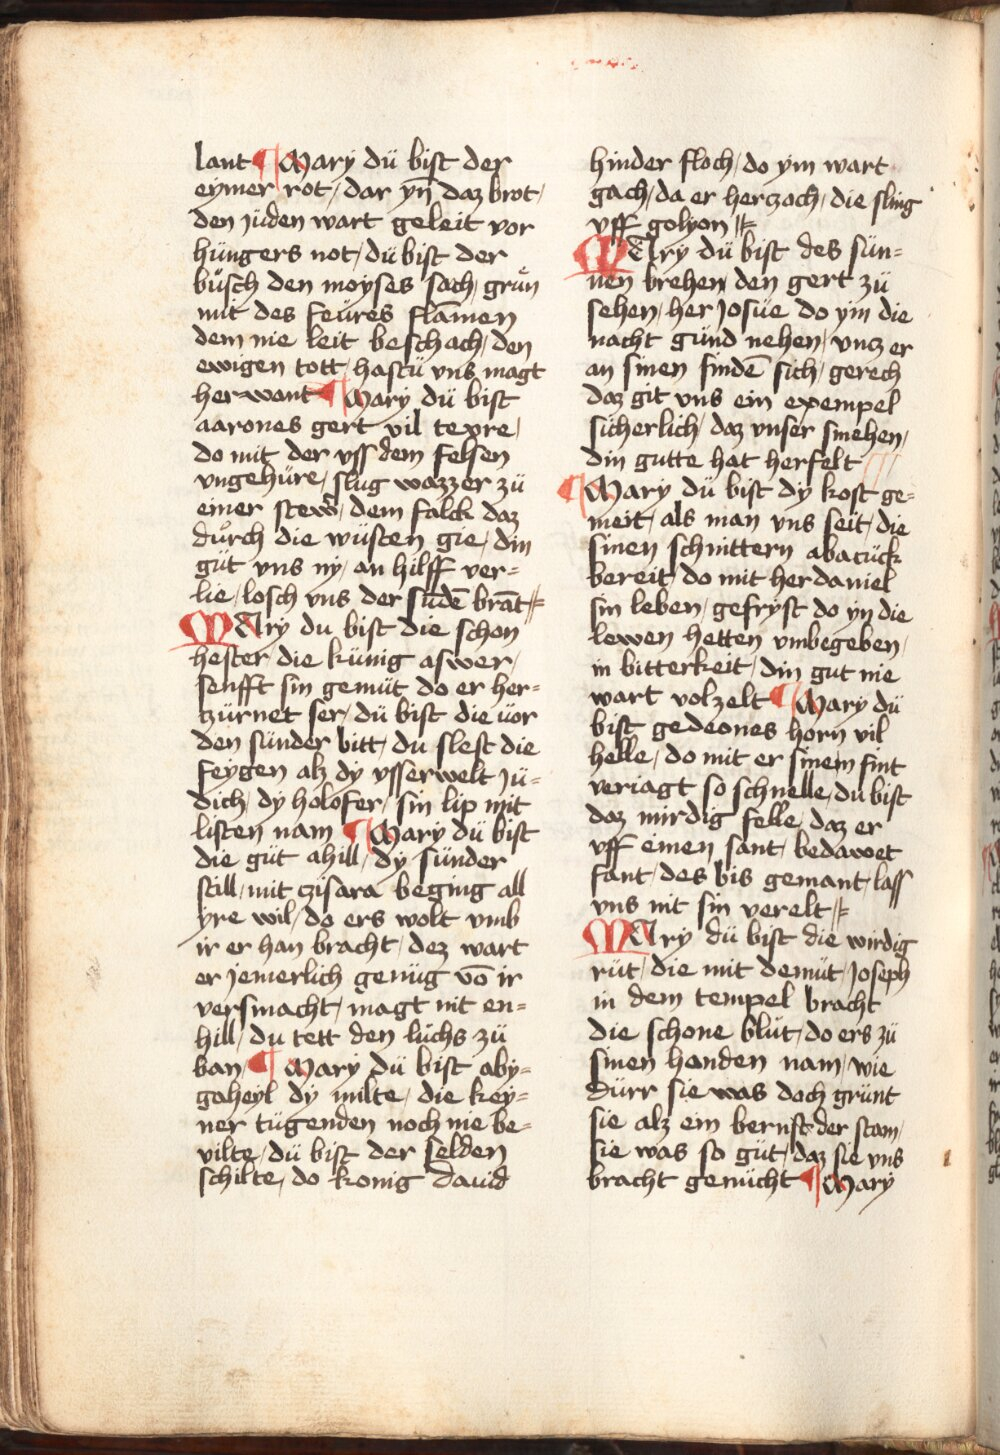 lant ¶ Mary dü bist der
eymer rot / dar yn̄ daz brot /
den jüden wart geleit vor
hüngers not / dü bist der
bůsch den moyses sach / grůn
mit des feüres flam̄en
dem nie leit beschach / den
ewigen tott / hastü vns magt
herwant ¶ Mary dü bist
aarones gert vil teẏre /
do mit der vss dem felsen
vngehüre / slug wazzer zü
einer stew̄ / dem falck daz
důrch die wüsten gie / din
güt vns nÿ / an hilff ver=
lie / losch vns der sündē brāt
MAry du bist die schon
hester / die künig aswer /
senfft sin gemüt do er her=
zürnet ser / dü bist die vor
den sünder bitt / du slest die
feygen alz dy vsserwelt jü=
dich / dy holofer / sin lip mit
listen nam ¶ Mary dü bist
die güt ahill / dy sünder
still / mit czisara beging all
yre wil / do ers wolt vmb
ir er han bracht / dez wart
er jemerlich genüg vō ir
versmacht / magt nit en=
hill / du tett den lüchs zü
ban / ¶ Mary dü bist aby=
gaheyl dy milte / die key=
ner tügenden noch nie be=
vilte / dü bist der selden
schilte / do konig dauid
hinder floch / do ym wart
gach / da er herzoch / die sling
vff golyon
MAry dü bist des sün=
nen brehen / den gert zü
sehen / her josüe do ym die
nacht günd nehen / vnz er
an sinen findē sich / gerech
daz git vns ein exempel
sicherlich / daz vnser smehen /
din gutte hat herfelt
¶ Mary dü bist dy kost ge=
meit / als man vns seit / die
sinen schnittern abacück
bereit / do mit her daniel
sin leben / gefryst do yn die
lewen hetten vmbegeben /
in bitterkeit / din gut nie
wart volzelt ¶ Mary dü
bist gedeones horn vil
helle / do mit er sinem fint
veriagt so schnelle / du bist
daz wirdig felle / daz er
vff einen sant / bedawet
fant / des bis gemant / lass
vns nit sin verelt
MAry dü bist die wirdig
rüt / die mit demüt / joseph
in dem tempel bracht
die schone blüt / do ers zü
sinen handen nam / wie
dürr sie was doch grünt
sie alz ein bernst der stam /
sie was so güt / daz sie vns
bracht genücht ¶ Mary